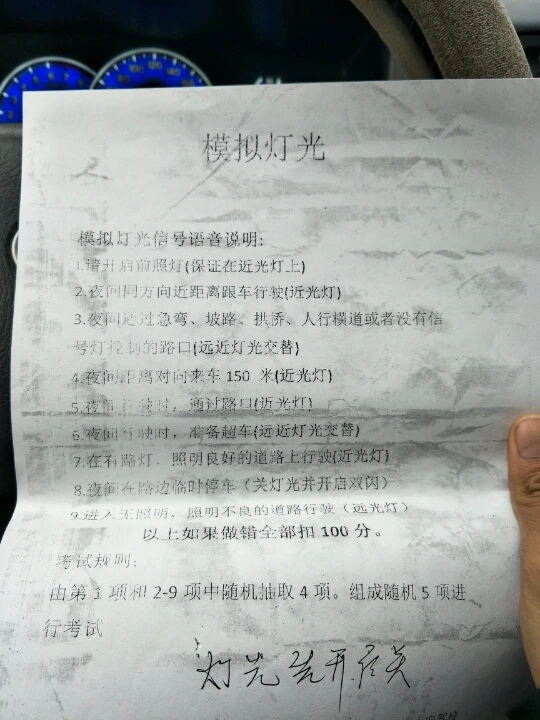 模拟灯光
模拟灯光信号语音说明:
1.请开启前照灯(保证在近光灯上)
2.夜间同方向近距离跟车行驶(近光灯)
3.夜间通过急弯、坡路、拱桥、人行横道或者没有信
号灯控制的路口(远近灯光交替)
4.夜间距离对向来车 150 米(近光灯)
5.夜间行驶时，通过路口(近光灯)
6.夜间行驶时，准备超车(远近灯光变替)
7.在有路灯．照明良好的道路上行驶(近光灯)
8.夜间在路边临时停车（关灯光并开启双闪）
9.进入无照明．照明不良的道路行驶（远光灯）
以上如果做错全部扣 100 分。
考试规则:
由第 1 项和 2-9 项中随机抽取 4 项。组成随机 5 项进
行考试
灯光先开后关